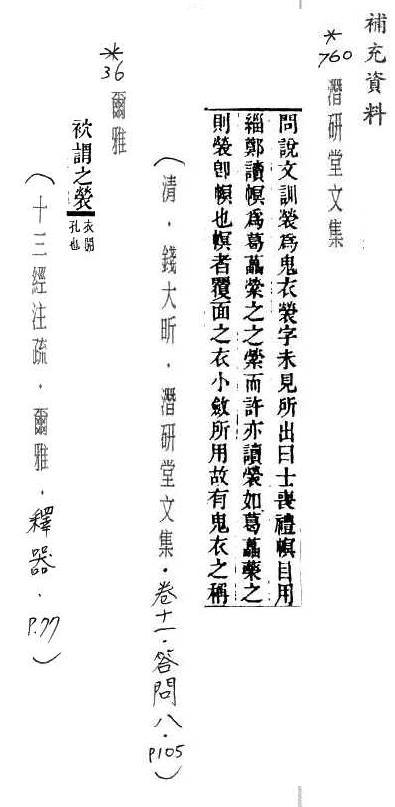 補充資料
*760 潛研堂文集
問說文訓褮爲鬼衣褮字未見所出曰士喪禮幎目用
緇鄭讀幎爲葛藟縈之之縈而許亦讀褮如葛藟藥之
則褮卽幎也幎者覆面之衣小斂所用故有鬼衣之稱
(清．錢大昕．潛研堂文集．卷十一．答問八．P105)
*36 爾雅
袕謂之褮 衣開孔也
(十三經注疏．爾雅．釋器．P.77)